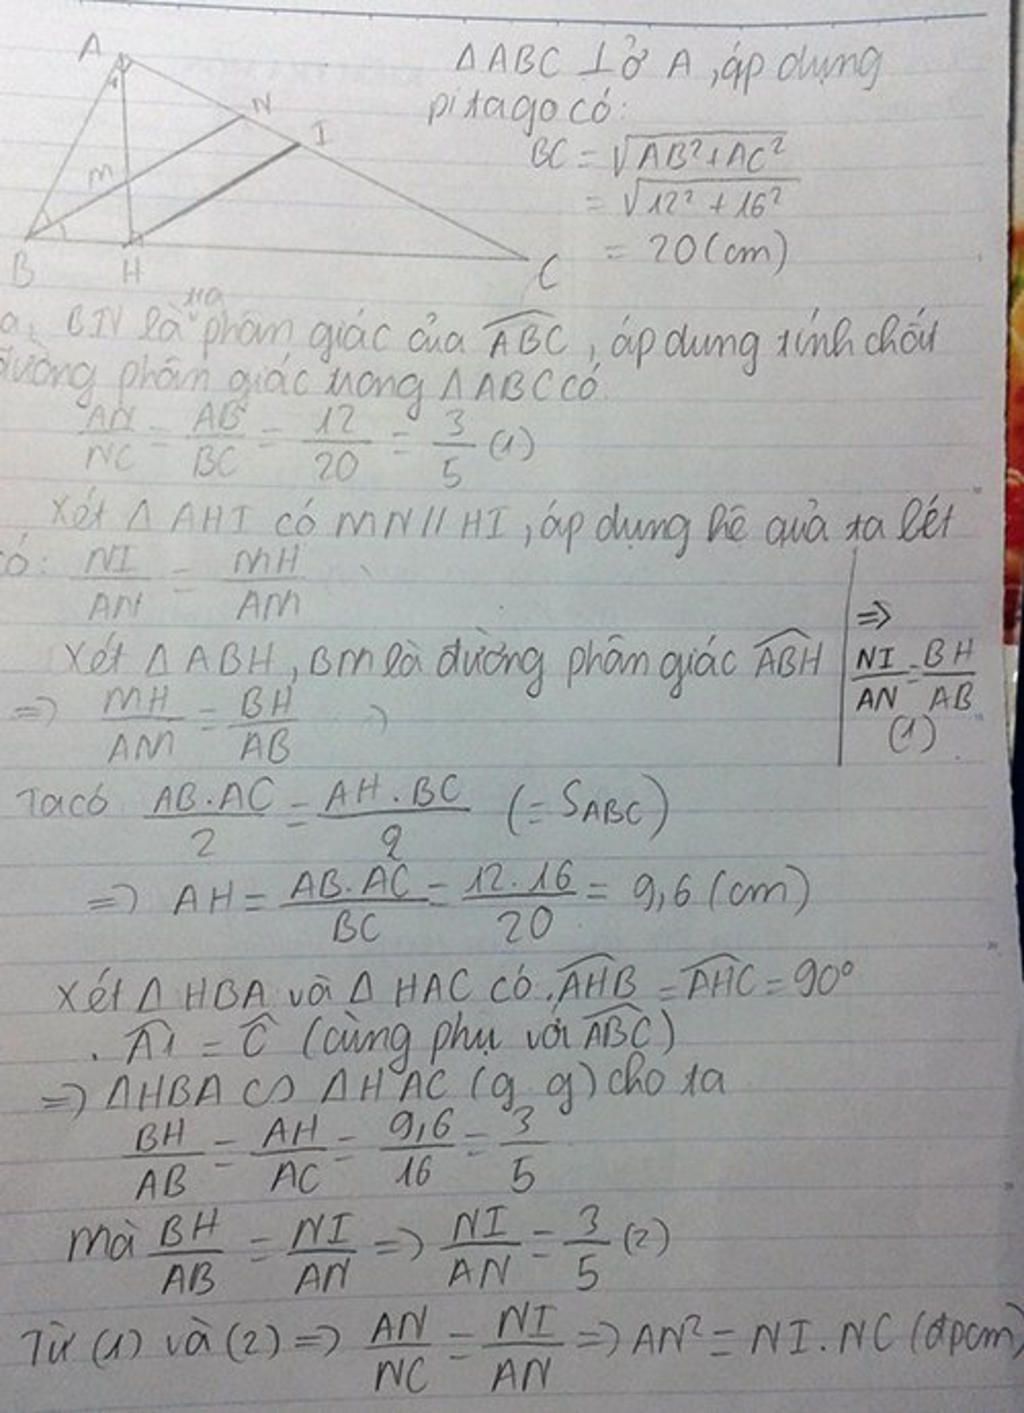 A
N
I
M
B
H
C
1
ΔABC ⊥ ở A, áp dụng
pitago có:
BC = √AB²+AC²
= √12² + 16²
= 20 (cm)
a, BN là tia phân giác của ABC, áp dụng tính chất
đường phân giác trong ΔABC có
AN/NC = AB/BC = 12/20 = 3/5 (1)
Xét Δ AHI có MN // HI, áp dụng hệ quả ta lét
có: NI/AN = MH/AM
Xét Δ ABH, BM là đường phân giác ABH
=> MH/AM = BH/AB
=>
NI/AN = BH/AB
(1)
Ta có AB.AC/2 = AH.BC/2 (= SABC)
=> AH = AB.AC/BC = 12.16/20 = 9,6 (cm)
Xét Δ HBA và Δ HAC có . AHB = AHC = 90°
. A1 = C (cùng phụ với ABC)
=> ΔHBA ∽ ΔHAC (g g) cho ta
BH/AB = AH/AC = 9,6/16 = 3/5
Mà BH/AB = NI/AN => NI/AN = 3/5 (2)
Từ (1) và (2) => AN/NC = NI/AN => AN² = NI.NC (đpcm)